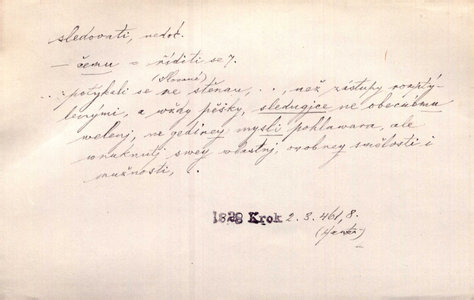 sledovati, nedok.
— čemu = říditi se?
(Slované)
... potykali se ne stěnau, .., než zástupy rozptý-
lenými, a wždy pěšky, sledugjce ne obecnému
welenj, ne gediney mysli pohlawara, ale
wnuknutj swey wlastnj, osobney smělosti i
mužnosti, ..
1828 Krok 2.3.461,8.